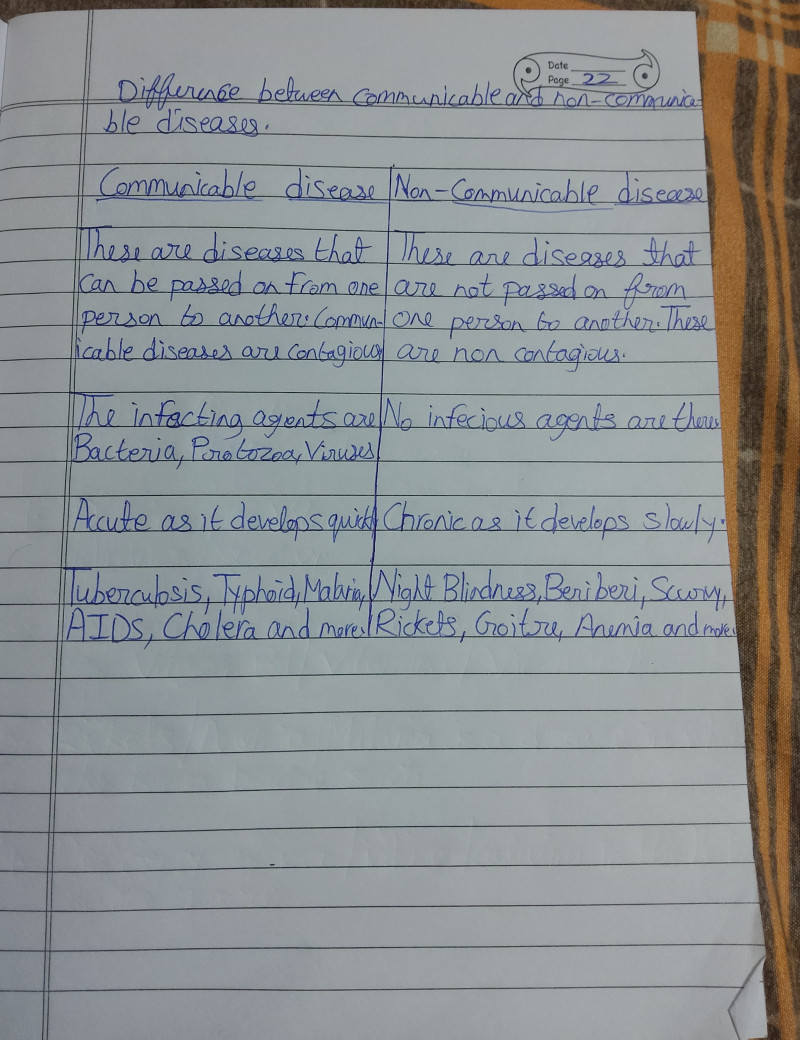 Date
Page 22
Difference between communicable and non-communica-
ble diseases.
Communicable disease Non-Communicable disease
These are diseases that These are diseases that
Can be passed on from one are not passed on from
person to another. Commun- one person to another. These
icable diseases are contagious are non contagious.
The infecting agents are No infecious agents are there
Bacteria, Protozoa, Viruses
Accute as it develops quickly Chronic as it develops slowly.
Tuberculosis, Typhoid, Malaria, Night Blindness, Beri beri, Scurvy,
AIDS, Cholera and more. Rickets, Goitre, Anemia and more.